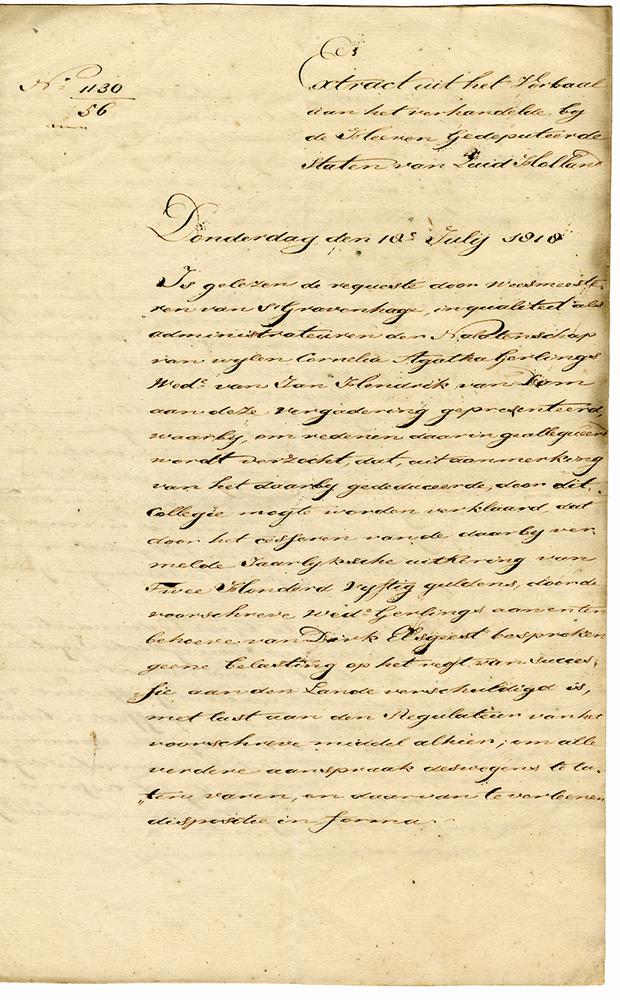 No. 1130
56
Extract uit het Verbaal
van het verhandelde by
de Heeren Gedeputeerde
Staten van Zuid Holland
Donderdag den 18e July 1818
Is gelezen de requeste door Weesmeeste-
ren van 'sGravenhage, in qualiteit als
administrateuren der Nalatenschap
van wylen Cornelia Agatha Gerlings
Wede van Jan Hendrik van Dam
aan deze vergadering gepresenteerd,
waarby, om redenen daarin geallegueerd
wordt verzocht, dat, uit aanmerking
van het daarby gededuceerde, door dit
Collegie mogte worden verklaard, dat
door het cesseren van de daarby ver-
melde Jaarlyksche uitkering van
Twee Honderd Vyftig guldens, door de
voorschreve Wede Gerlings aan en ten
behoeve van Dirk Elsgeest besproken
geene belasting op het regt van Succes-
sie aan den Lande verschuldigd is,
met last aan den Regulateur van het
voorschreve middel alhier, om alle
verdere aanspraak deswegens te la-
"ten varen, en daarvan te verleenen
dispositie in forma.